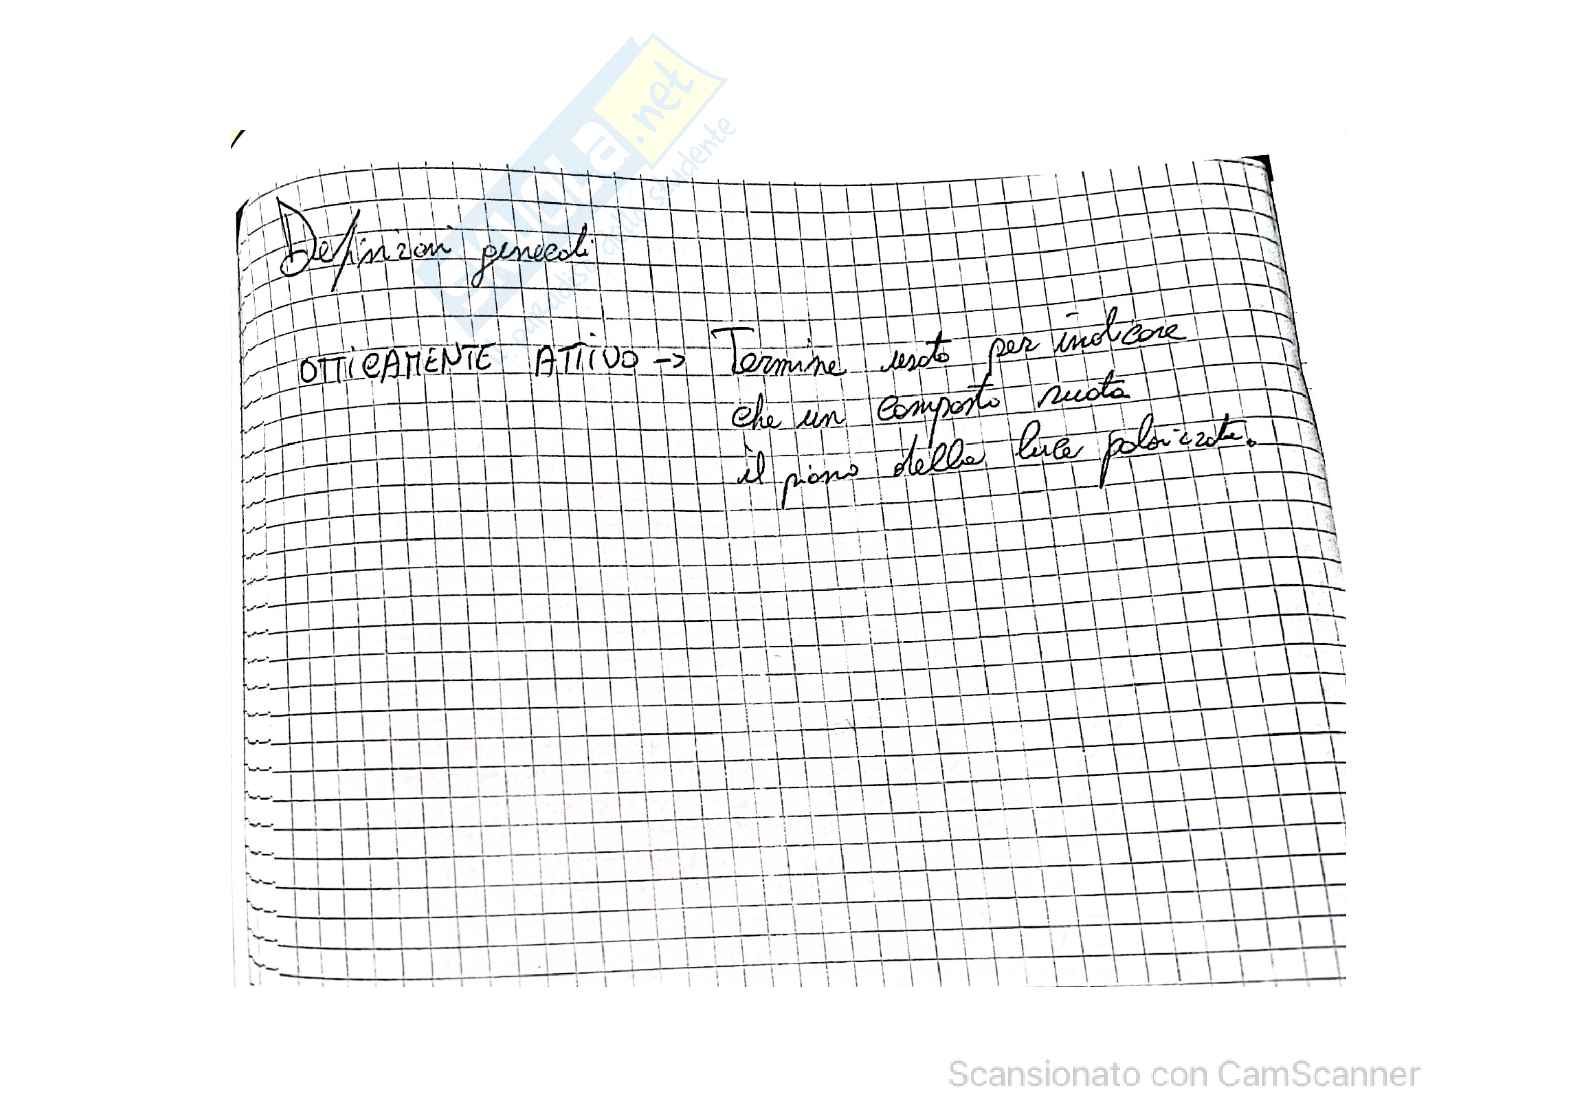 Definizioni generali
OTTICAMENTE ATTIVO -> Termine usato per indicare
che un composto ruota
il piano della luce polarizzata.
SKUOLA.net
il paradiso dello studente
Scansionato con CamScanner